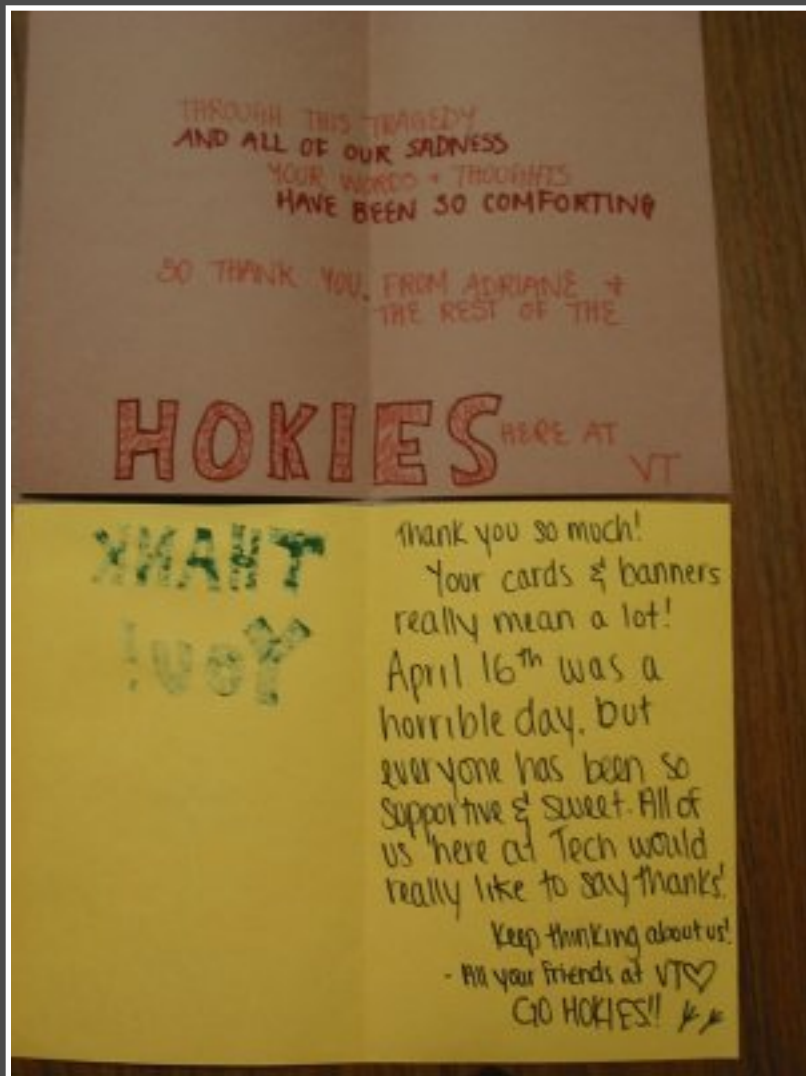 THROUGH THIS TRAGEDY
AND ALL OF OUR SADNESS
YOUR WORDS + THOUGHTS
HAVE BEEN SO COMFORTING
SO THANK YOU, FROM ADRIANE +
THE REST OF THE
HOKIES HERE AT
VT
THANK
YOU!
Thank you so much!
Your cards & banners
really mean a lot!
April 16th was a
horrible day, but
everyone has been so
supportive & sweet. All of
us here at Tech would
really like to say thanks!
Keep thinking about us!
- All your friends at VT♡
GO HOKIES!!